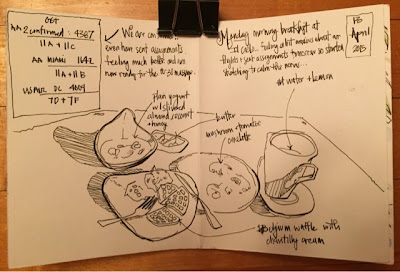 OET
AA 2 confirmed: 4367
11A + 11C
AA MIAMI 1642
11A + 11B
US AIR DC 4604
7D + 7F
We are confirmed...
even have seat assignments
feeling much better and are
now ready for the message...
Monday morning breakfast at
feeling a bit anxious about our
flights + seat assignments tomorrow so started
sketching to calm the nerves...
PB
April
2013
plain yogurt
w/ slivered
almond, coconut
+ honey
butter
mushroom + tomatoe
omelette
hot water + lemon
Belgium waffle with
chantilly cream